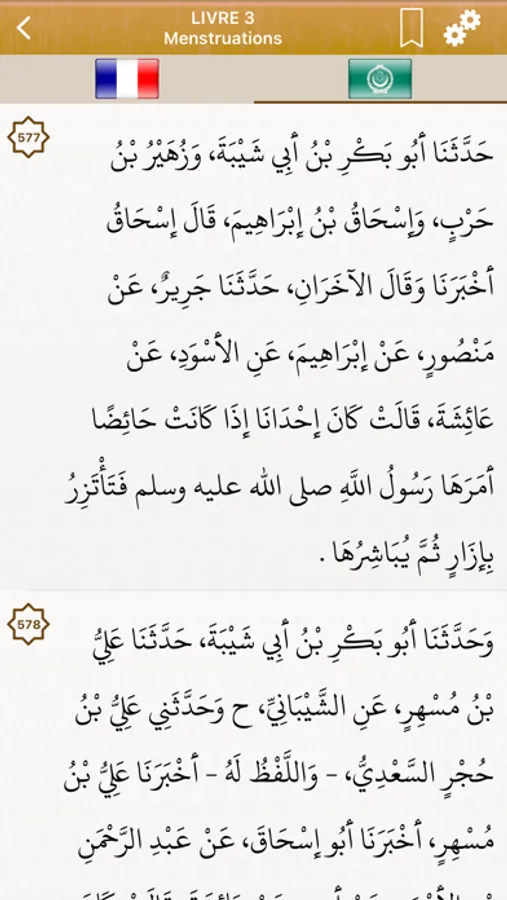 LIVRE 3
Menstruations
577
حَدَّثَنَا أَبُو بَكْرِ بْنُ أَبِي شَيْبَةَ، وَزُهَيْرُ بْنُ
حَرْبٍ، وَإِسْحَاقُ بْنُ إِبْرَاهِيمَ، قَالَ إِسْحَاقُ
أَخْبَرَنَا وَقَالَ الآخَرَانِ، حَدَّثَنَا جَرِيرٌ، عَنْ
مَنْصُورٍ، عَنْ إِبْرَاهِيمَ، عَنِ الأَسْوَدِ، عَنْ
عَائِشَةَ، قَالَتْ كَانَ إِحْدَانَا إِذَا كَانَتْ حَائِضًا
أَمَرَهَا رَسُولُ اللَّهِ صلى الله عليه وسلم فَتَأْتَزِرُ
بِإِزَارٍ ثُمَّ يُبَاشِرُهَا .
578
وَحَدَّثَنَا أَبُو بَكْرِ بْنُ أَبِي شَيْبَةَ، حَدَّثَنَا عَلِيُّ
بْنُ مُسْهِرٍ، عَنِ الشَّيْبَانِيِّ، ح وَحَدَّثَنِي عَلِيُّ بْنُ
حُجْرٍ السَّعْدِيُّ، - وَاللَّفْظُ لَهُ - أَخْبَرَنَا عَلِيُّ بْنُ
مُسْهِرٍ، أَخْبَرَنَا أَبُو إِسْحَاقَ، عَنْ عَبْدِ الرَّحْمَنِ